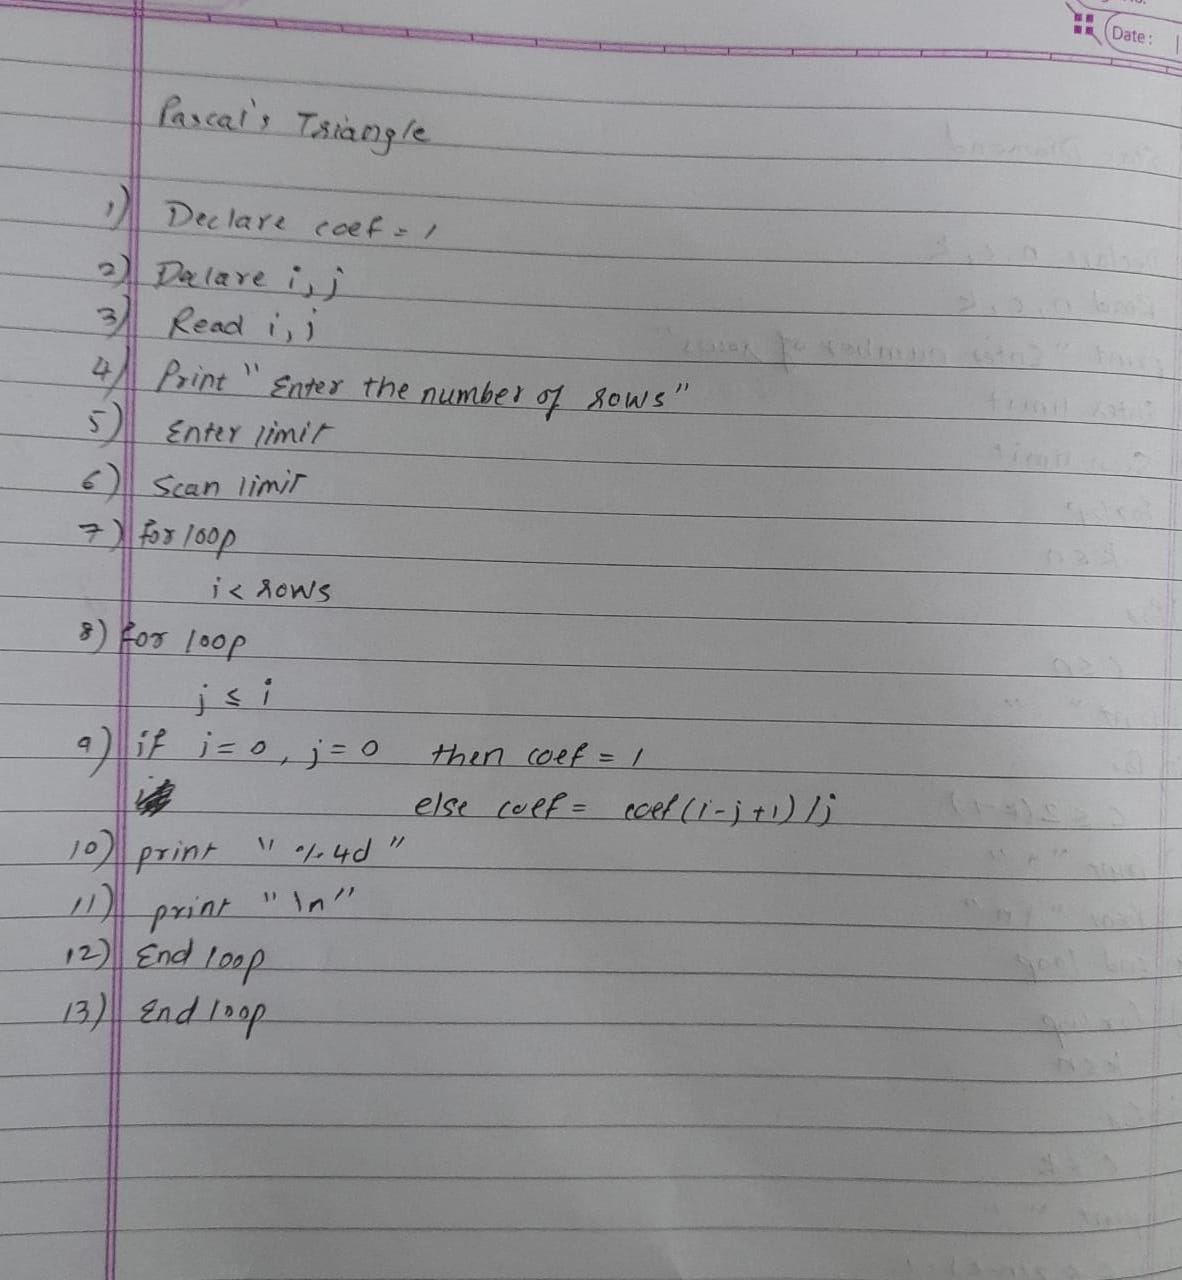 Date:
Pascal's Triangle
1) Declare coef = 1
2) Delare i, j
3) Read i, j
4) Print "Enter the number of rows"
5) Enter limit
6) Scan limit
7) for loop
i < rows
8) for loop
j ≤ i
9) if i = 0, j = 0 then coef = 1
else coef = coef (i-j+1) /j
10) print "%4d"
11) print "\n"
12) End loop
13) End loop